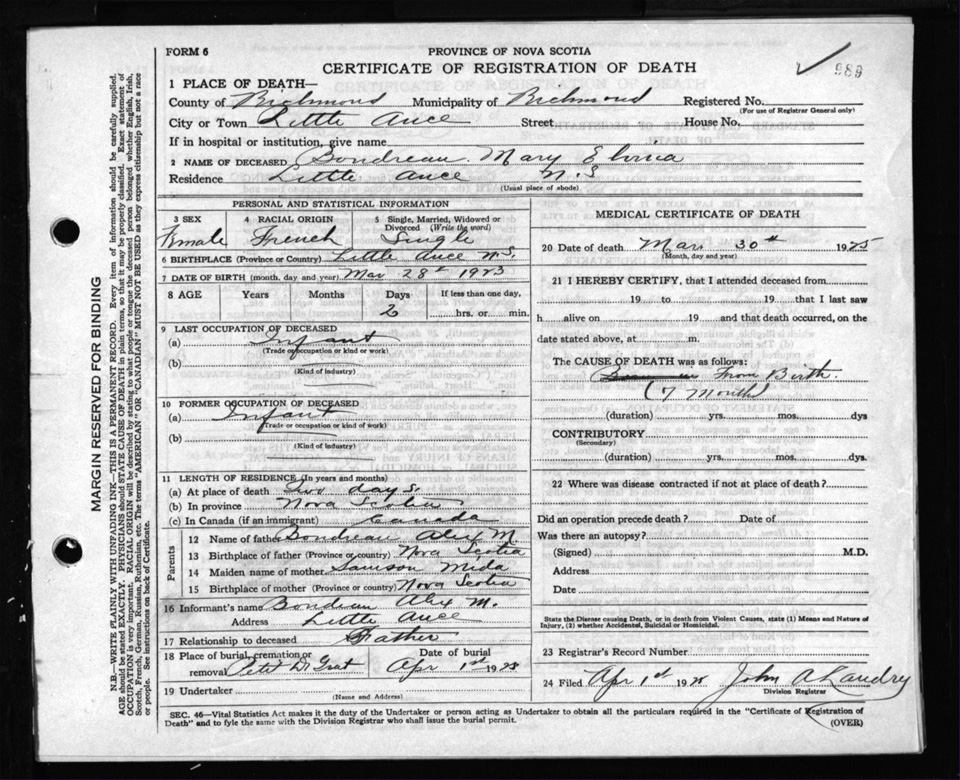 FORM 6
PROVINCE OF NOVA SCOTIA
CERTIFICATE OF REGISTRATION OF DEATH
989
1 PLACE OF DEATH—
County of Richmond Municipality of Richmond Registered No.
(For use of Registrar General only)
City or Town Little Ance Street House No.
If in hospital or institution, give name
2 NAME OF DECEASED Bondreau. Mary Elvina
Residence Little Ance N.S
(Usual place of abode)
PERSONAL AND STATISTICAL INFORMATION
3 SEX 4 RACIAL ORIGIN 5 Single, Married, Widowed or Divorced (Write the word)
Female French Single
6 BIRTHPLACE (Province or Country) Little Ance N.S.
7 DATE OF BIRTH (month, day and year) Mar 28th
8 AGE Years Months Days If less than one day,
2 hrs. or min.
9 LAST OCCUPATION OF DECEASED
(a) Infant
(Trade or occupation or kind or work)
(b)
(Kind of industry)
10 FORMER OCCUPATION OF DECEASED
(a) Infant
(Trade or occupation or kind or work)
(b)
(Kind of industry)
11 LENGTH OF RESIDENCE (In years and months)
(a) At place of death Two days.
(b) In province Nova Scotia
(c) In Canada (if an immigrant) Canada
Parents
12 Name of father Bondreau Alex M.
13 Birthplace of father (Province or country) Nova Scotia
14 Maiden name of mother Samson Mida
15 Birthplace of mother (Province or country) Nova Scotia
16 Informant's name Bondreau Alex M.
Address Little Ance
17 Relationship to deceased Father
18 Place of burial, cremation or removal Petet D. Grat
Date of burial
Apr 1st 1928
19 Undertaker
(Name and Address)
MEDICAL CERTIFICATE OF DEATH
20 Date of death Mar 30th 192
(Month, day and year)
21 I HEREBY CERTIFY, that I attended deceased from
19 to 19 that I last saw
h alive on 19 and that death occurred, on the
date stated above, at m.
The CAUSE OF DEATH was as follows:
From Birth.
(7 Months)
(duration) yrs. mos. dys
CONTRIBUTORY
(Secondary)
(duration) yrs. mos. dys.
22 Where was disease contracted if not at place of death?
Did an operation precede death? Date of
Was there an autopsy?
(Signed) M.D.
Address
Date
State the Disease causing Death, or in death from Violent Causes, state (1) Means and Nature of
Injury, (2) whether Accidental, Suicidal or Homicidal.
23 Registrar's Record Number
24 Filed Apr 1st 1928 John A Landry
Division Registrar
SEC. 46—Vital Statistics Act makes it the duty of the Undertaker or person acting as Undertaker to obtain all the particulars required in the "Certificate of Registration of
Death" and to fyle the same with the Division Registrar who shall issue the burial permit.
(OVER)
MARGIN RESERVED FOR BINDING
N.B.—WRITE PLAINLY WITH UNFADING INK—THIS IS A PERMANENT RECORD. Every item of information should be carefully supplied.
AGE should be stated EXACTLY. PHYSICIANS should STATE CAUSE OF DEATH in plain terms, so that it may be properly classified. Exact statement of
OCCUPATION is very important. RACIAL ORIGIN will be described by stating to what people or tongue the deceased person belonged whether English, Irish,
Scotch, French, German, Russian, Ruthenian, etc. The terms "AMERICAN" OR "CANADIAN" MUST NOT BE USED as they express citizenship but not a race
or people. See instructions on back of Certificate.